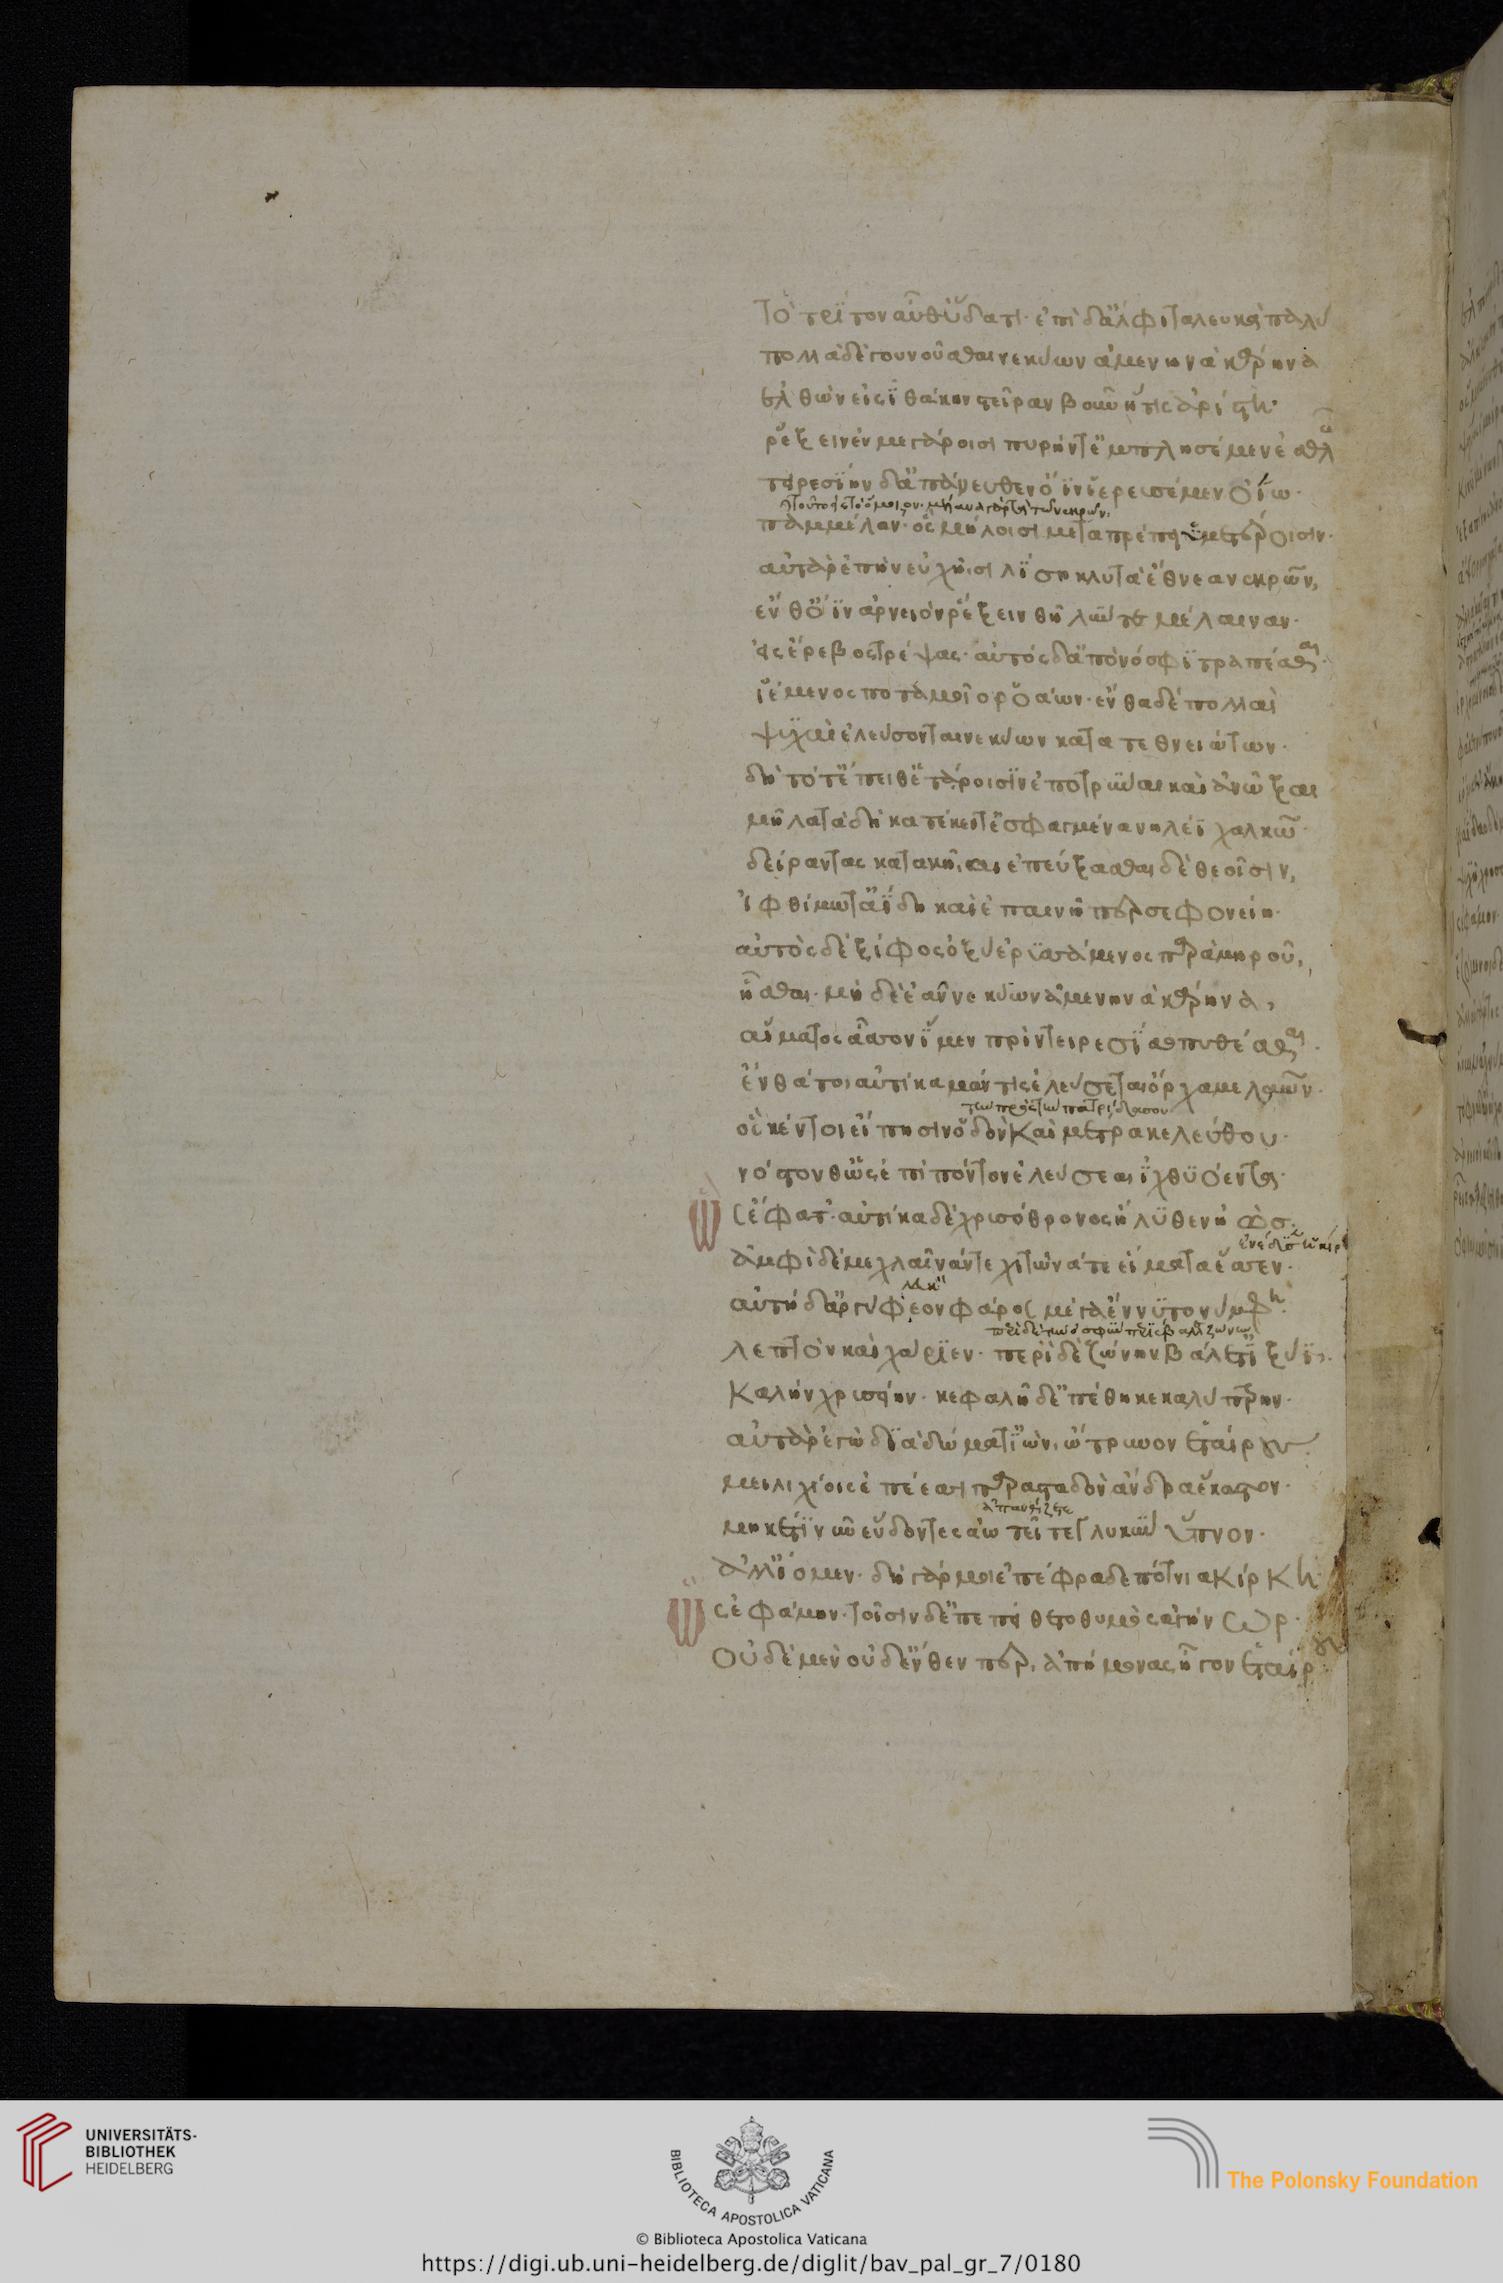 τὸ τρίτον αὖθ' ὕδατι· ἐπὶ δ' ἄλφιτα λευκὰ παλύ
πολλὰ δὲ γουνοῦσθαι νεκύων ἀμενηνὰ κάρηνα
ἐλθὼν εἰς ἰθάκην στεῖραν βοῦν ἥτις ἀρίστη·
ῥέξειν ἐν μεγάροισι πυρήν τ' ἐμπλησέμεν ἐσθλῶν
τειρεσίῃ δ' ἀπάνευθεν ὄϊν ἱερευσέμεν οἴω·
παμμέλαν· ὃς μήλοισι μεταπρέπει ὑμετέροισιν·
αὐτὰρ ἐπὴν εὐχῇσι λίσῃ κλυτὰ ἔθνεα νεκρῶν,
ἔνθ' ὄϊν ἀρνειὸν ῥέξειν θῆλύν τε μέλαιναν·
εἰς ἔρεβος τρέψας· αὐτὸς δ' ἀπονόσφι τραπέσθαι·
ἱέμενος ποταμοῖο ῥοάων· ἔνθα δὲ πολλαὶ
ψυχαὶ ἐλεύσονται νεκύων κατατεθνειώτων·
δὴ τότ' ἔπειθ' ἑτάροισιν ἐποτρῦναι καὶ ἀνῶξαι
μῆλα τὰ δὴ κατέκειτ' ἐσφαγμένα νηλέϊ χαλκῶ·
δείραντας κατακῆαι· ἐπεύξασθαι δὲ θεοῖσιν,
ἰφθίμω τ' ἀΐδη καὶ ἐπαινῇ περσεφονείη·
αὐτὸς δὲ ξίφος ὀξὺ ἐρυσσάμενος παρὰ μηροῦ,
ἧσθαι· μὴ δὲ ἐᾶν νεκύων ἀμενηνὰ κάρηνα,
αἵματος ἆσσον ἴμεν πρὶν τειρεσίαο πυθέσθαι·
ἔνθά τοι αὐτίκα μάντις ἐλεύσεται ὄρχαμε λαῶν·
ὅς κέν τοι εἴπησιν ὁδὸν καὶ μέτρα κελεύθου·
νόστον θ' ὡς ἐπὶ πόντον ἐλεύσεαι ἰχθυόεντα·
ὣς ἔφατ'· αὐτίκα δὲ χρυσόθρονος ἤλυθεν ἠώς·
ἀμφὶ δέ με χλαῖνάν τε χιτῶνά τε εἵματα ἕσσεν·
αὐτὴ δ' ἀργύφεον φᾶρος μέγα ἕννυτο νύμφη·
λεπτὸν καὶ χαρίεν· περὶ δὲ ζώνην βάλετ' ἰξυῖ·
καλὴν χρυσείην· κεφαλῇ δ' ἐπέθηκε καλύπτρην·
αὐτὰρ ἐγὼ διὰ δώματ' ἰὼν, ὤτρυνον ἑταίρους
μειλιχίοις ἐπέεσσι παρασταδὸν ἄνδρα ἕκαστον·
μηκέτι νῦν εὕδοντες ἀωτεῖτε γλυκὺν ὕπνον·
ἀλλ' ἴομεν· δὴ γάρ μοι ἐπέφραδε πότνια κίρκη
ὣς ἐφάμην· τοῖσιν δ' ἐπεπείθετο θυμὸς ἀγήνωρ·
οὐδὲ μὲν οὐδ' ἔνθεν περ, ἀπήμονας ἦγον ἑταίρους
UNIVERSITÄTS-
BIBLIOTHEK
HEIDELBERG
BIBLIOTECA APOSTOLICA VATICANA
The Polonsky Foundation
© Biblioteca Apostolica Vaticana
https://digi.ub.uni-heidelberg.de/diglit/bav_pal_gr_7/0180